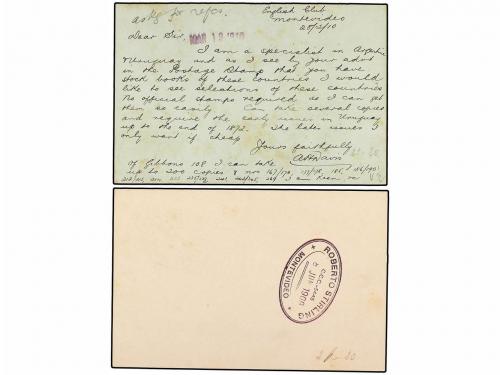 asks for refcs.
English Club
Montevideo
28/2/10
Dear Sir,
MAR 19 1910
I am a specialist in Argentine
& Uruguay and as I see by your advt
in the Postage Stamp that you have
stock books of these countries I would
like to see selections of these countries
No official stamps required as I can get
them so easily. Can take several copies
and require the early issues in Uruguay
up to the end of 1872. The later issues I
only want if cheap
Yours faithfully
A H Davis
of Gibbons 108 I can take
up to 200 copies & nos 167/170,
I am keen on
ROBERTO STIRLING
JUN 1900
* MONTEVIDEO *